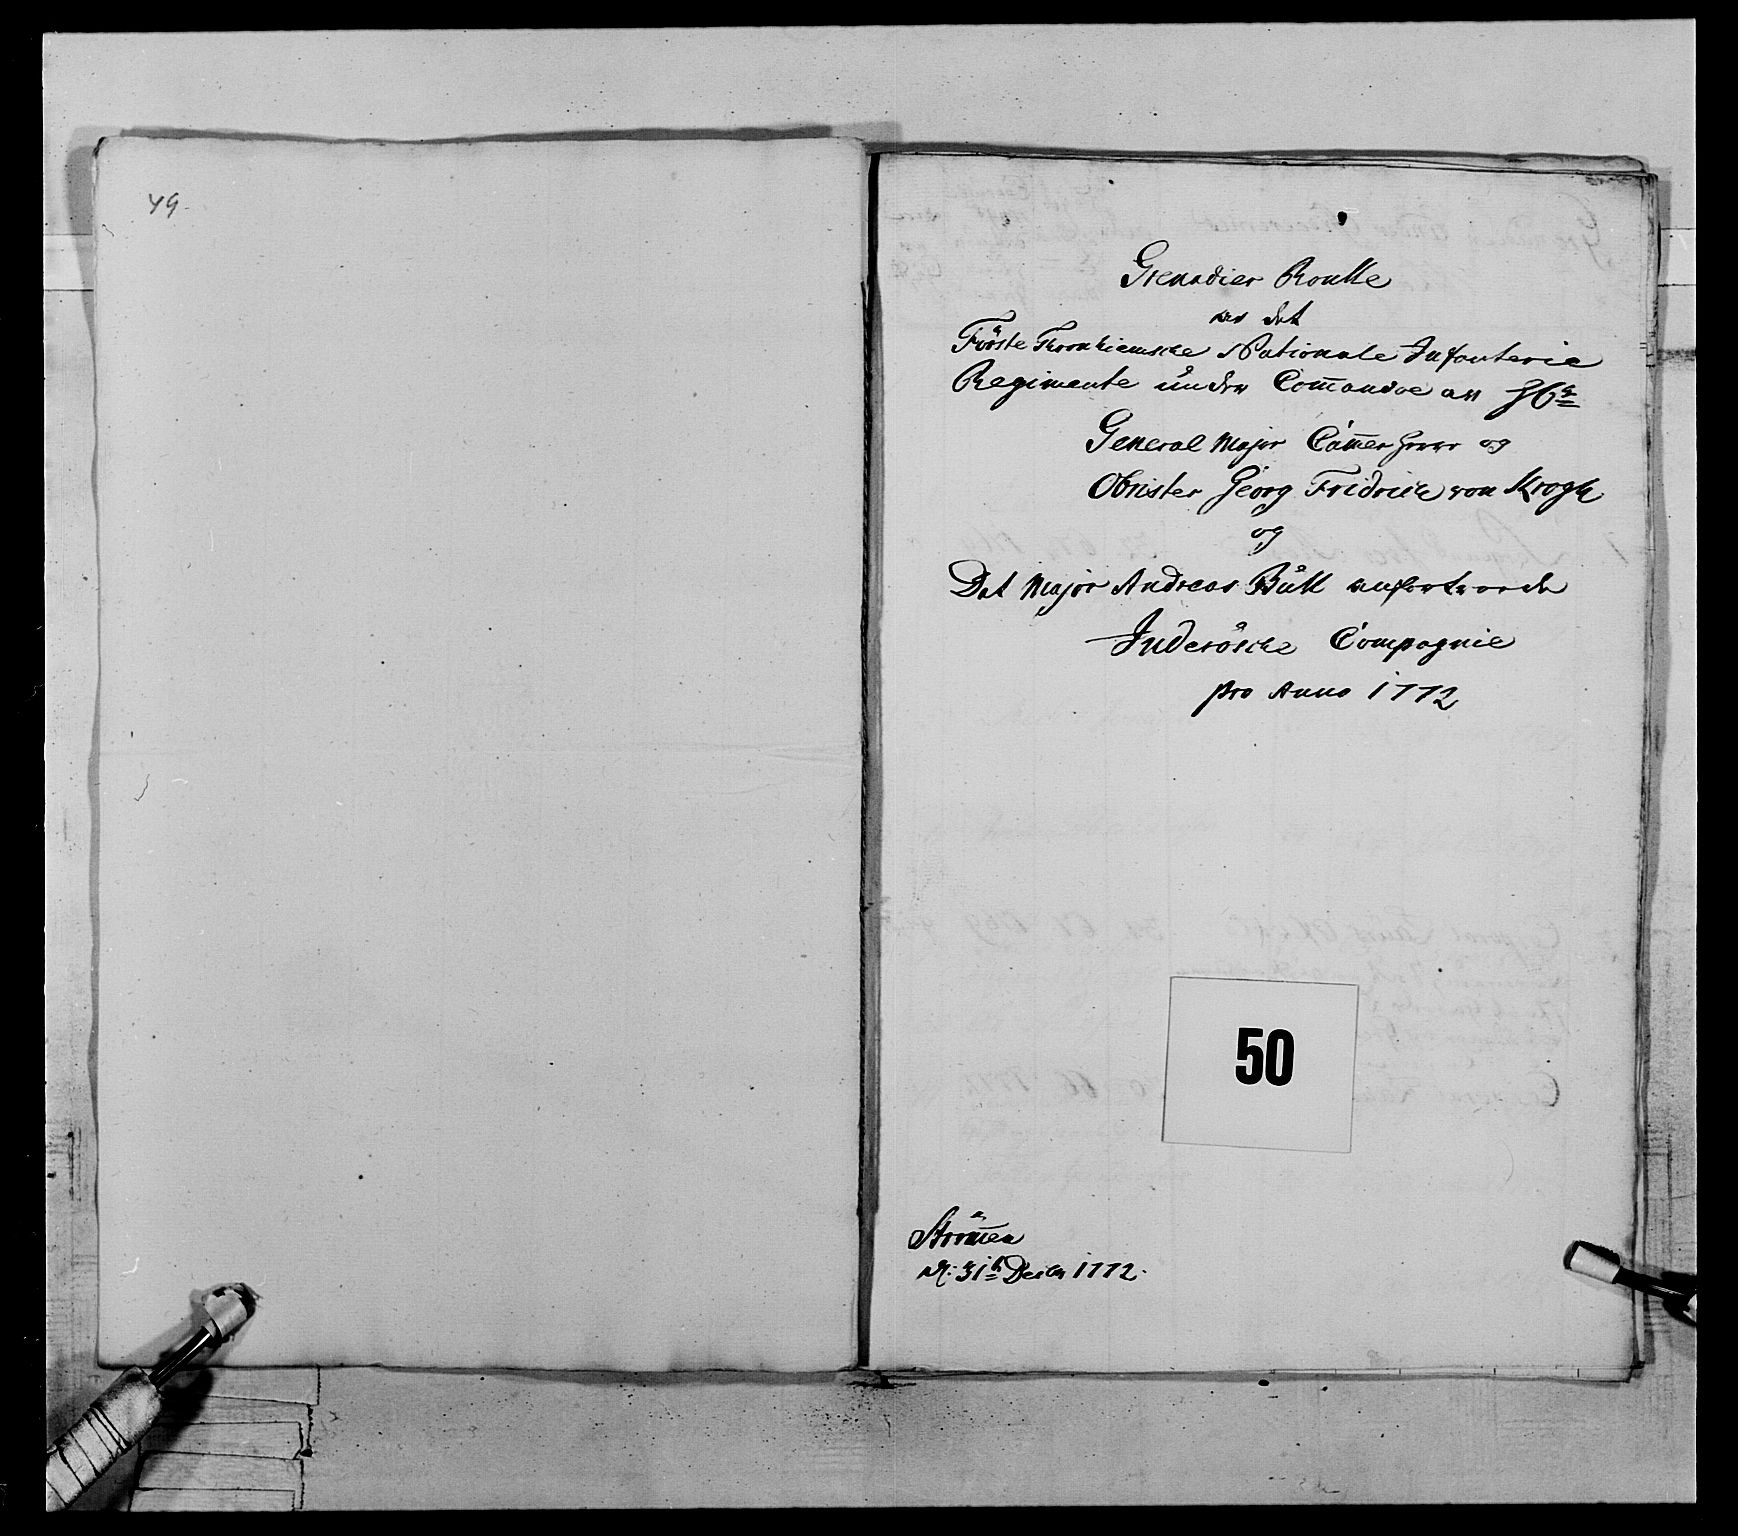 49.
Grenadier Roulle
av det
Förste Tronhiemske Nationale Infanterie
Regimente under Com̄andoe av Hr
General Major Cam̄erherre og
Obrister Georg Fridrich von Krogh
og
Det Major Andreas Bull anfortroede
Inderöiske Compagnie
pro Anno 1772
50
Ström̄en
d: 31te Decbr 1772.